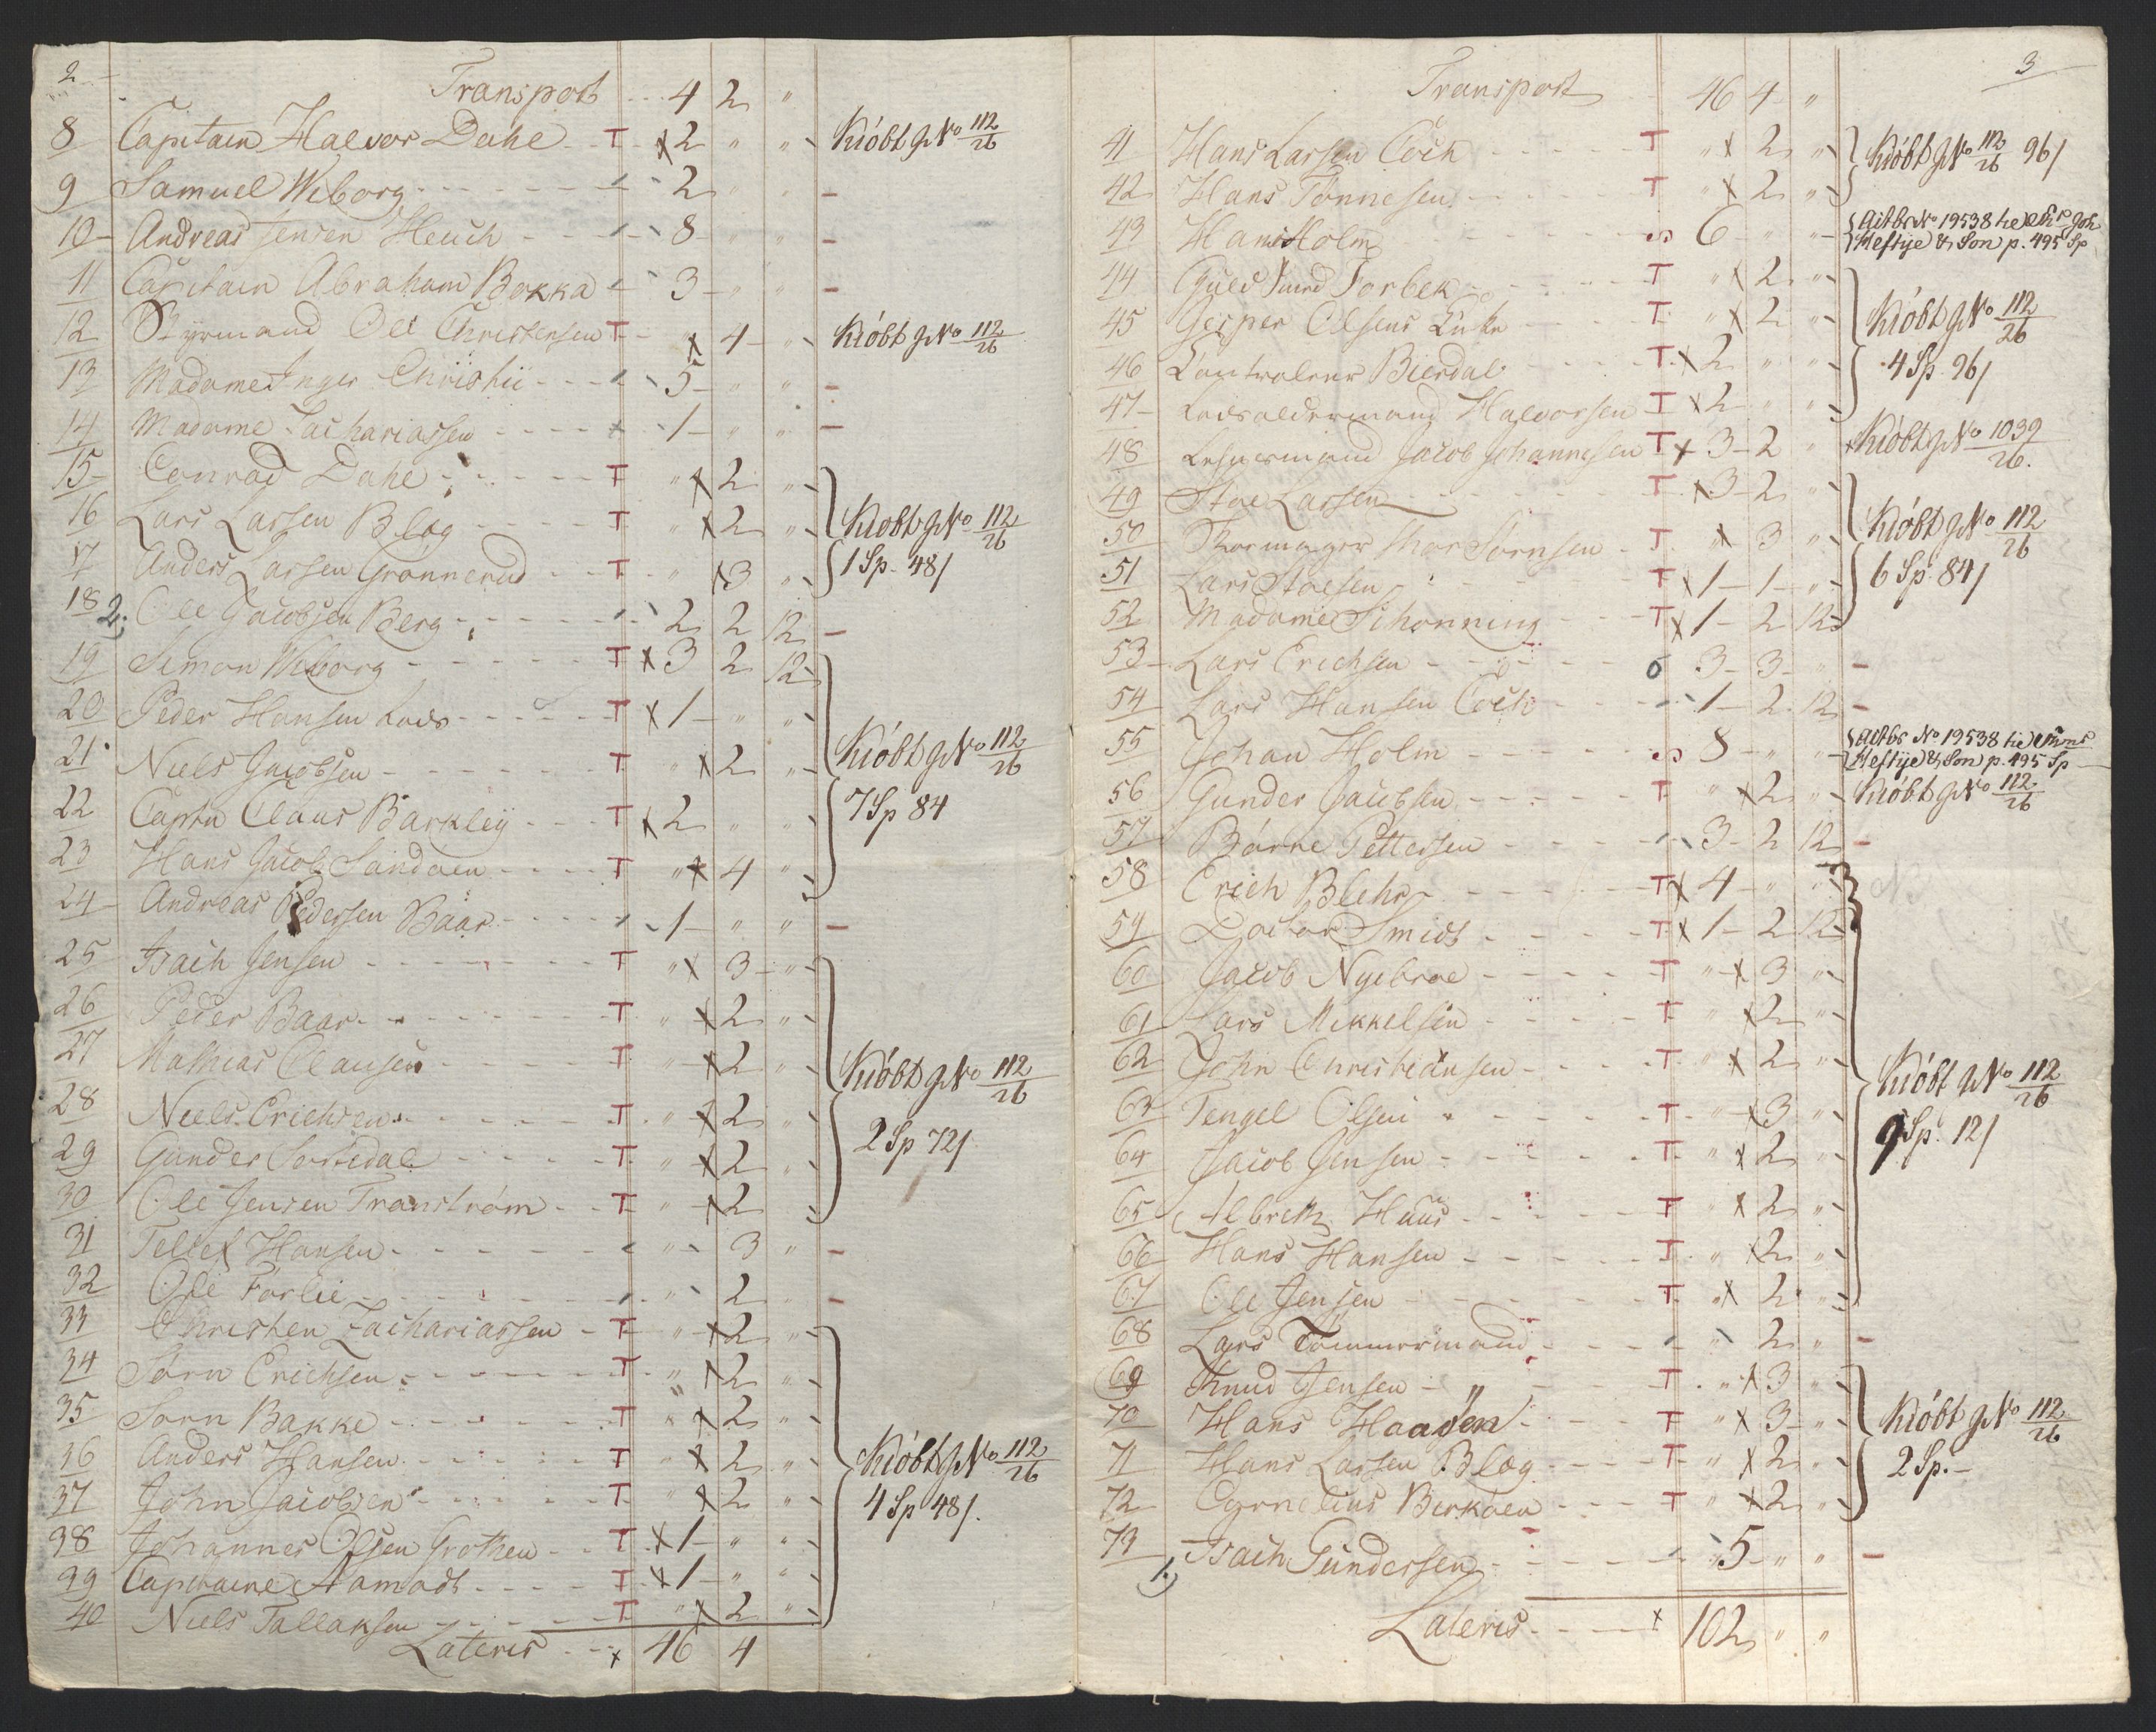 2
Transport 4 2 "
8 Capitain Halvor Dahl T x 2 " " Kiöbt p No 112/26
9 Samuel Wiborg 2 " " -
10 Andreas Jensen Heuch 8 " " -
11 Capitain Abraham Bokka 3 " " -
12 Styrmand Ole Christensen T x 4 " Kiöbt p No 112/26
13 Madame Inger Christii 5 " " -
14 Madame Zachariassen 1 " " -
15 Conrad Dahl T " x 2 "
16 Lars Larsen Blog T " x 2 " Kiöbt p No 112/26
17 Anders Larsen Grönnerud T " x 3 " 1 Sp. 48/
18 2. Ole Jacobsen Berg 2 2 12 -
19 Simon Wiborg T x 3 2 12
20 Peder Hansen Lods T x 1 " "
21 Niels Jacobsen T " x 2 " Kiöbt p No 112/26
22 Captn Claus Barkley T x 2 " " 7 Sp 84
23 Hans Jacob Sandaen T " x 4 "
24 Andreas Pedersen Baar 1 " " -
25 Isach Jensen T " x 3 "
26 Peder Baar T " x 2 "
27 Mathias Clausen T " x 2 " Kiöbt p No 112/26
28 Niels Erichsen T " x 2 "
29 Gunder Sortedal T " x 2 " 2 Sp 72/
30 Ole Jensen Tranström T " x 2 "
31 Tellef Hansen " 3 " -
32 Ole Forlie " 2 " -
33 Christen Zachariassen T " x 2 "
34 Sörn Erichsen T " x 2 "
35 Sörn Bakke T " x 2 "
36 Anders Hansen T " x 2 " Kiöbt p No 112/26
37 John Jacobsen T " x 2 " 4 Sp 48/.
38 Johannes Olsen Grothen T x 1 " "
39 Capitaine Aamodt T x 1 " "
40 Niels Tallaksen T " x 2 "
Lateris x 46 4
3
Transport 46 4 "
41 Hans Larsen Cöck T " x 2 " Kiöbt p No 112/26 96/
42 Hans Tönnesen T " x 2 "
43 Hans Holm 6 " " Aitbr No 19538 Joh
Heftye & Son p. 495 Sp
44 Torbek T " x 2 "
45 Jesper Olsens Enke T " x 2 " Kiöbt p No 112/26
46 Controleur Bierdal T x 2 " " 4 Sp. 96/
47 Lodsaldermand Halvorsen T x 2 " "
48 Lensmand Jacob Johannesen T x 3 2 " Kiöbt p No 1039/26.
49 Stoe Larsen T x 3 2 "
50 Thor Sörnsen T " x 3 " Kiöbt p No 112/26
51 Lars Stoesen T x 1 1 " 6 Sp. 84/
52 Madame Schönning T x 1 2 12
53 Lars Erichsen 0 3 3 " -
54 Lars Hansen Cöck 1 2 12 -
55 Johan Holm 8 " " Aitbr No 19538
Heftye & Son p. 495 Sp
56 Gunder Jacobsen T " x 2 " Kiöbt p No 112/26
57 Börre Pettersen 3 2 12 -
58 Erich Blehr T x 4 " "
59 Doctor Smidt T x 1 2 12
60 Jacob Nyebroe T " x 3 "
61 Lars Mikkelsen T " x 2 "
62 John Christiansen T " x 2 " Kiöbt p No 112/26
63 Tengel Olsen T " x 3 "
64 Jacob Jensen T " x 2 " 9 Sp. 12/
65 Albreth Huus T " x 2 "
66 Hans Hansen T " x 2 "
67 Ole Jensen T " x 2 "
68 Lars Tömmermand " 2 " -
69 Knud Jensen T " x 3 "
70 Hans Haagen T " x 3 " Kiöbt p No 112/26
71 Hans Larsen Blog T " x 2 " 2 Sp. -
72 Cornelius Birkaen T " x 2 "
73 1. Isach Gundersen 5 " " -
Lateris x 102 " "